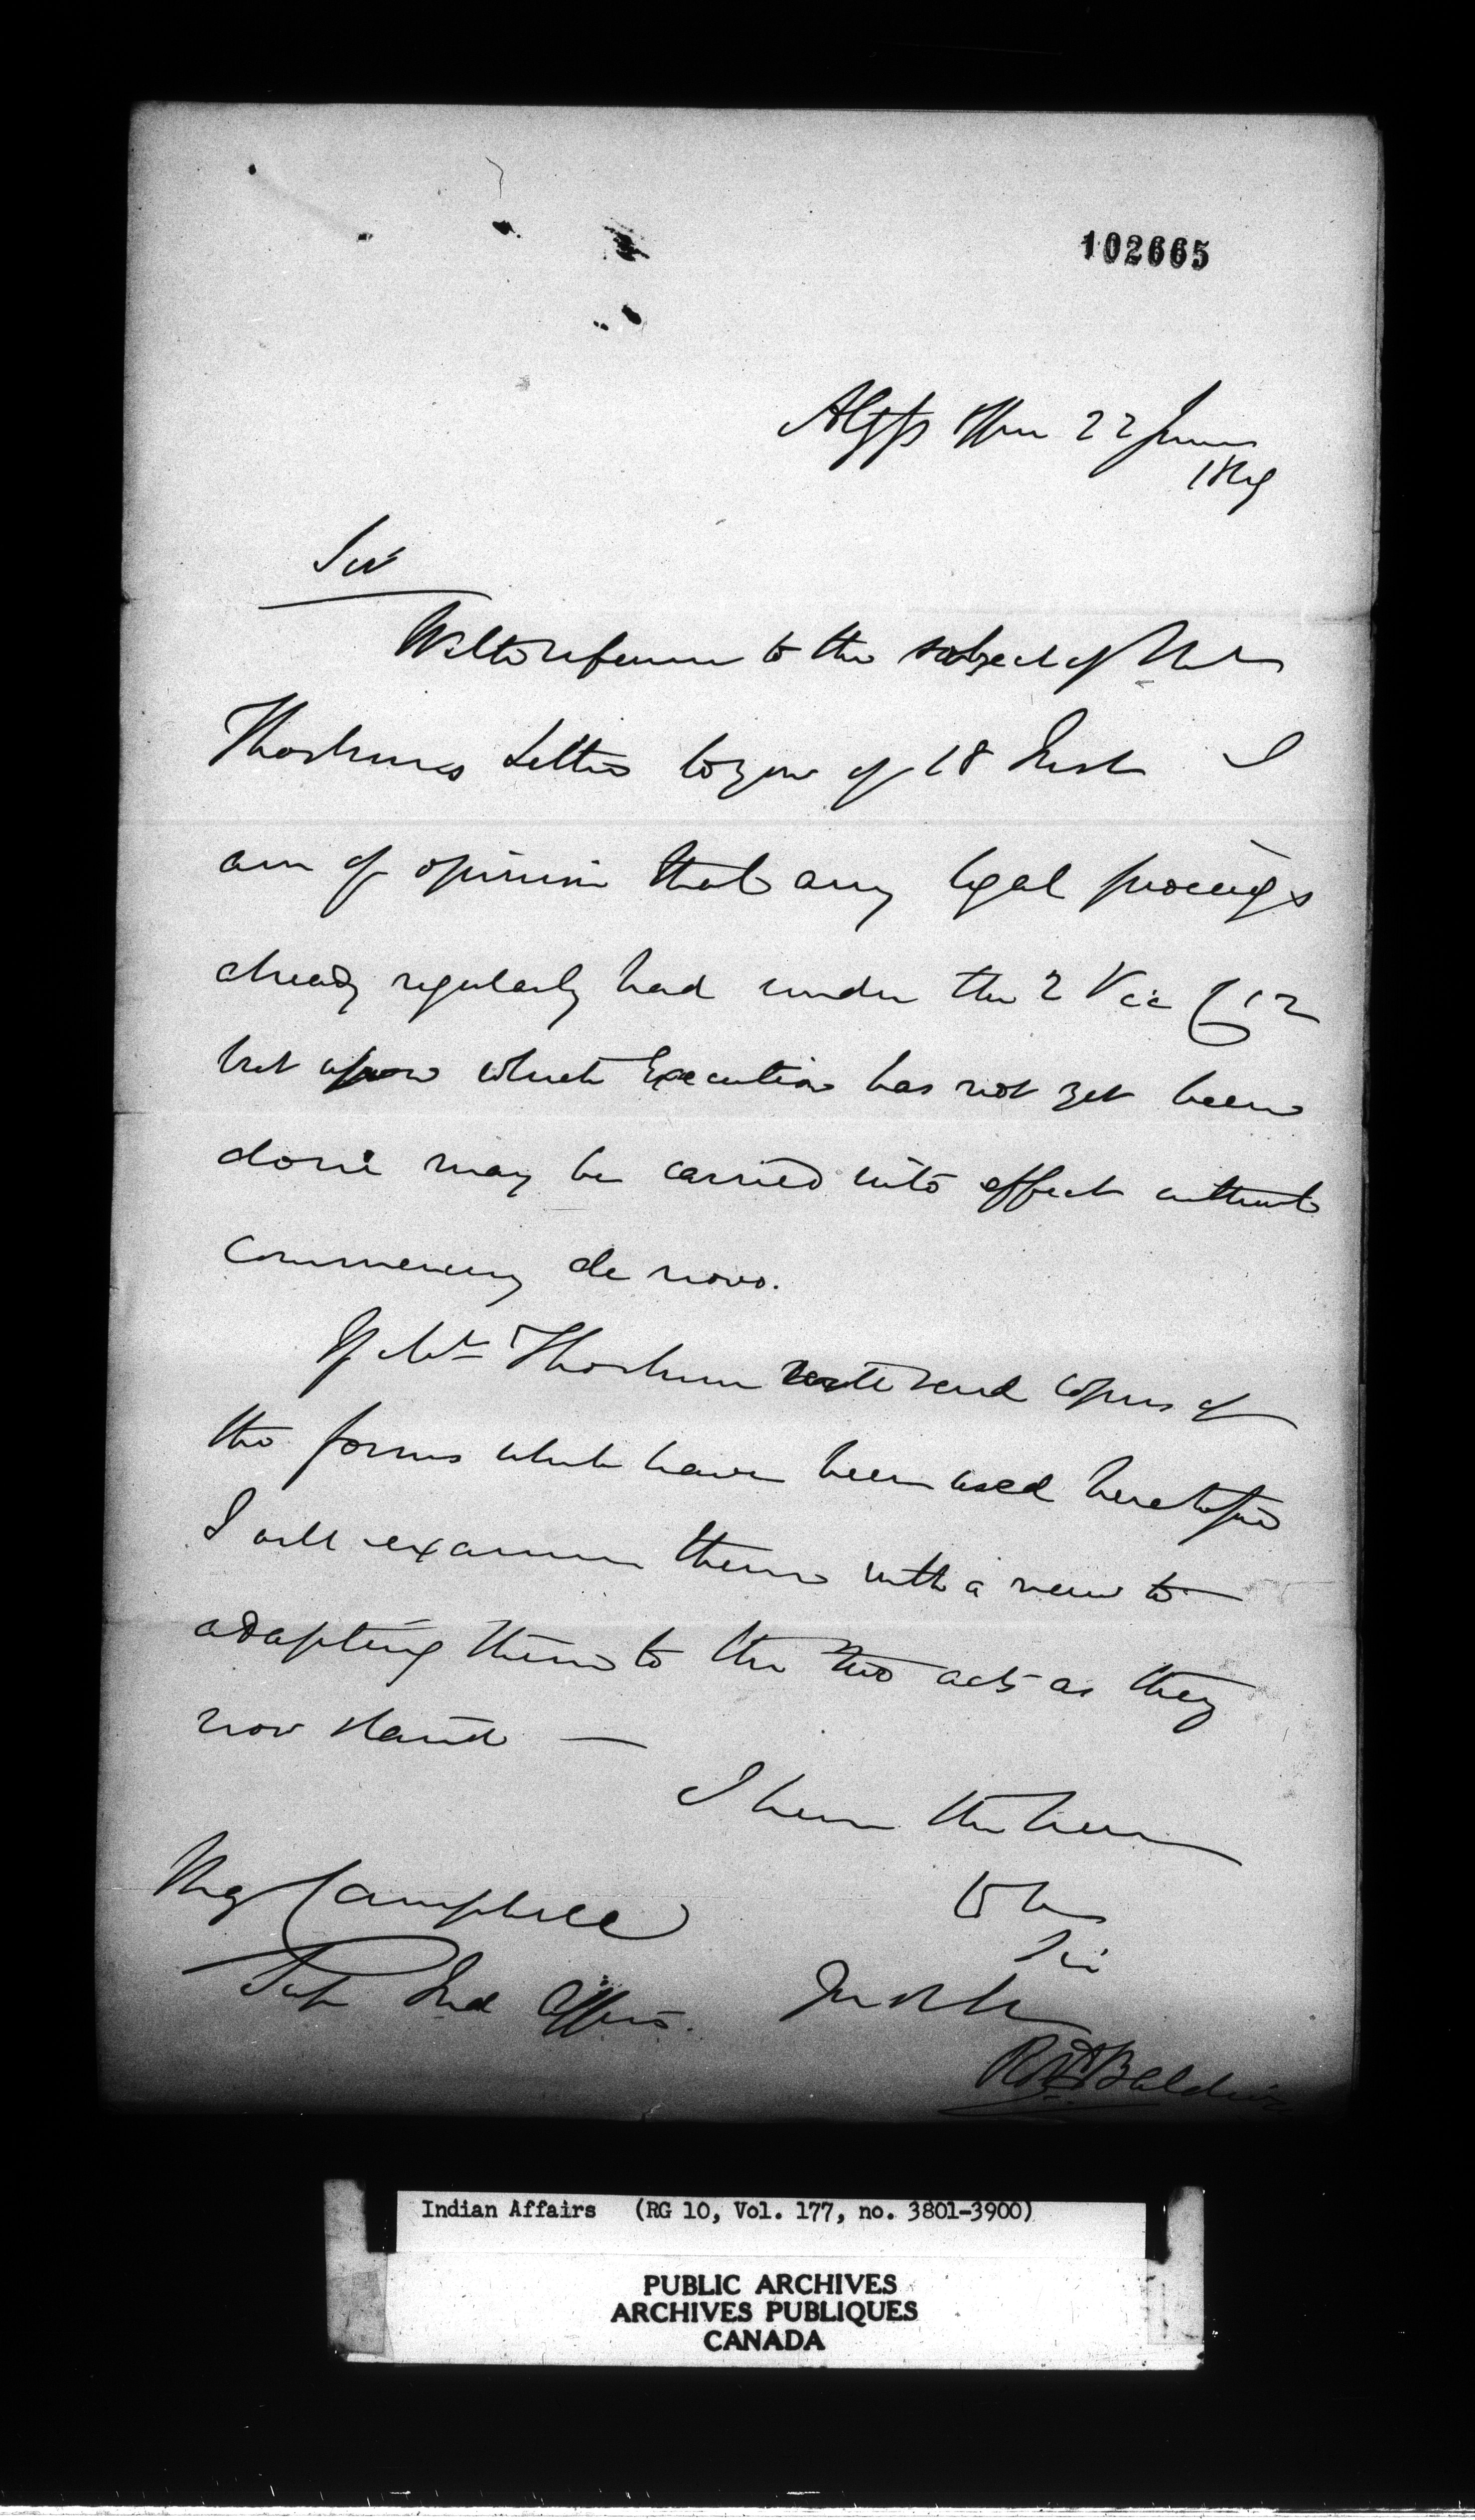 102665
Office 22 June
1849
Sir
With reference to the subject of Mr
Thorburns Letter to you of 18 Inst I
am of opinion that any legal proceedgs
already regularly had under the 2 Vic C 15
but upon which Execution has not yet been
done may be carried into effect without
commencing de novo.
If Mr Thorburn will send copies of
the forms which have been used heretofore
I will examine them with a view to
adapting them to the two acts as they
now stand —
I have the honor
to be
Sir
Campbell
Supt Ind Affairs.
Baldwin
Indian Affairs (RG 10, Vol. 177, no. 3801-3900)
PUBLIC ARCHIVES
ARCHIVES PUBLIQUES
CANADA